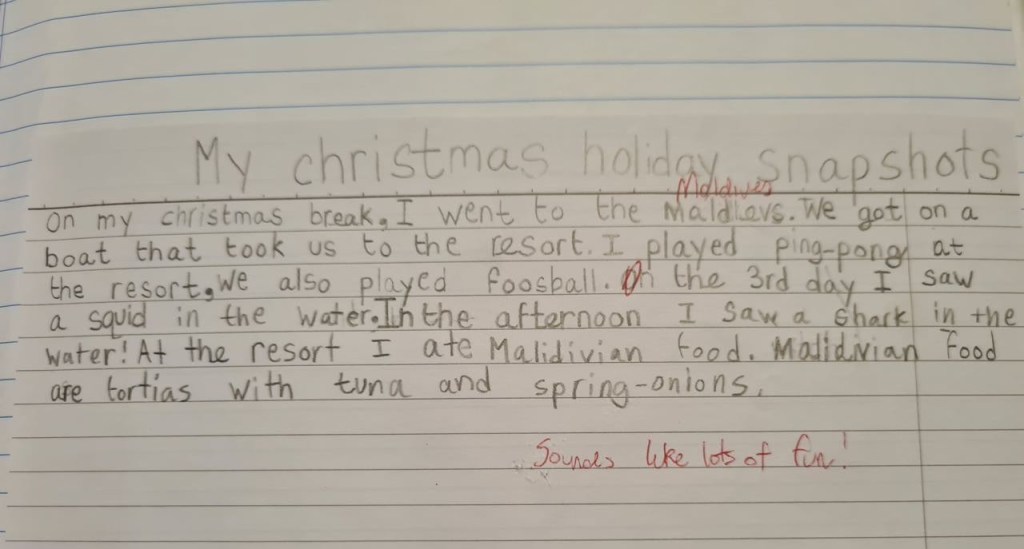 My christmas holiday snapshots
Maldives
On my christmas break, I went to the Maldievs. We got on a
boat that took us to the resort. I played ping-pong at
the resort. We also played foosball. On the 3rd day I saw
a squid in the water. In the afternoon I saw a shark in the
water! At the resort I ate Malidivian food. Malidivian food
are tortias with tuna and spring-onions.
Sounds like lots of fun!